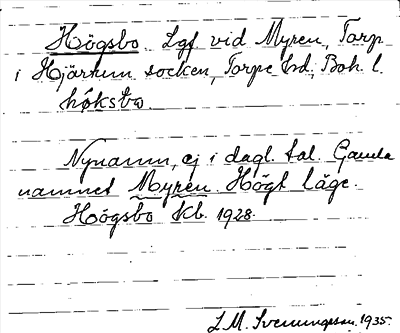 Högsbo Lgf vid Myren, Torp
i Hjärtum socken, Torpe hd, Boh. l.
hǿksbω
Nynamn, ej i dagl. tal. Gamla
namnet Myren. Högt läge.
Högsbo Kb. 1928.
L.M. Svenungsson. 1935.